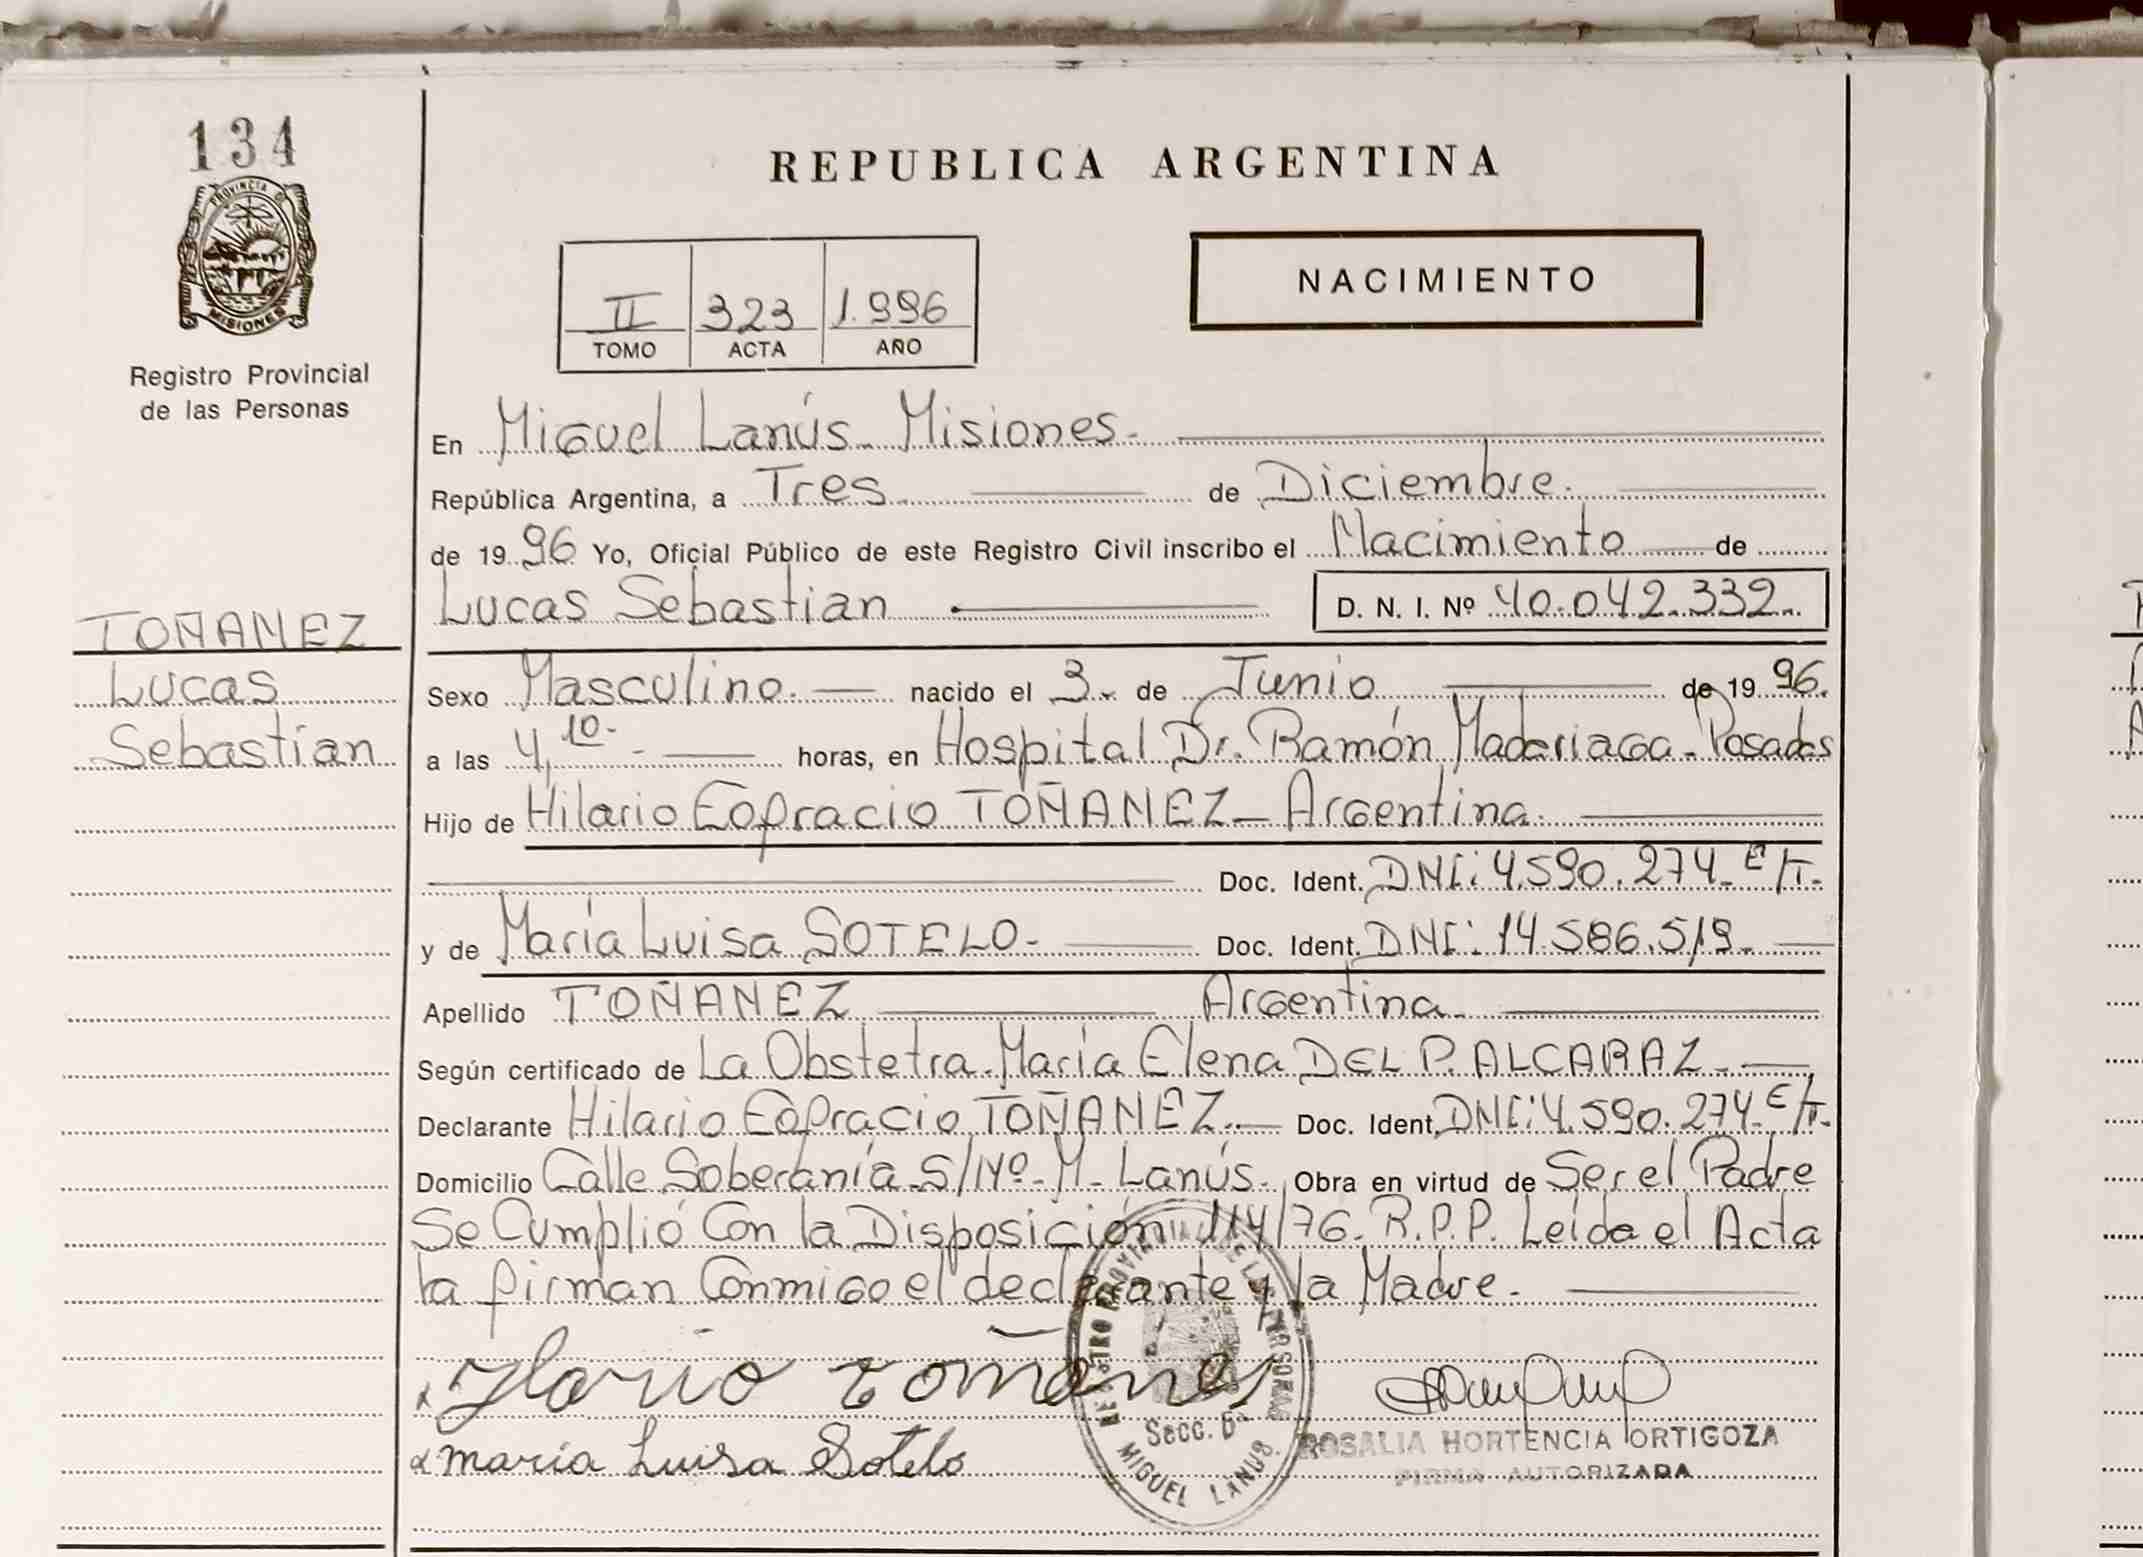 134
PROVINCIA DE
MISIONES
Registro Provincial
de las Personas
TOÑANEZ
Lucas
Sebastian
REPUBLICA ARGENTINA
II 323 1.996
TOMO ACTA AÑO
NACIMIENTO
En Miguel Lanús- Misiones-
República Argentina, a Tres de Diciembre.
de 19 96 Yo, Oficial Público de este Registro Civil inscribo el Nacimiento de
Lucas Sebastian D. N. I. Nº 40.042.332.
Sexo Masculino. nacido el 3. de Junio de 19 96.
a las 4,10- horas, en Hospital Dr. Ramón Madariaga- Posadas
Hijo de Hilario Eofracio TOÑANEZ- Argentina.
Doc. Ident. DNI: 4.590.274-E/T.
y de María Luisa SOTELO- Doc. Ident. DNI: 14.586.519.
Apellido TOÑANEZ Argentina.
Según certificado de La Obstetra María Elena DEL P. ALCARAZ.
Declarante Hilario Eofracio TOÑANEZ. Doc. Ident. DNI: 4.590.274-E/T.
Domicilio Calle Soberanía S/Nº- M- Lanús. Obra en virtud de Ser el Padre
Se Cumplió Con la Disposición 114/76. R.P.P. Leída el Acta
la firman Conmigo el declarante y la Madre.
María Luisa Sotelo
REGISTRO PROVINCIAL DE LAS PERSONAS
Secc. 6ª
MIGUEL LANUS
ROSALIA HORTENCIA ORTIGOZA
FIRMA AUTORIZADA